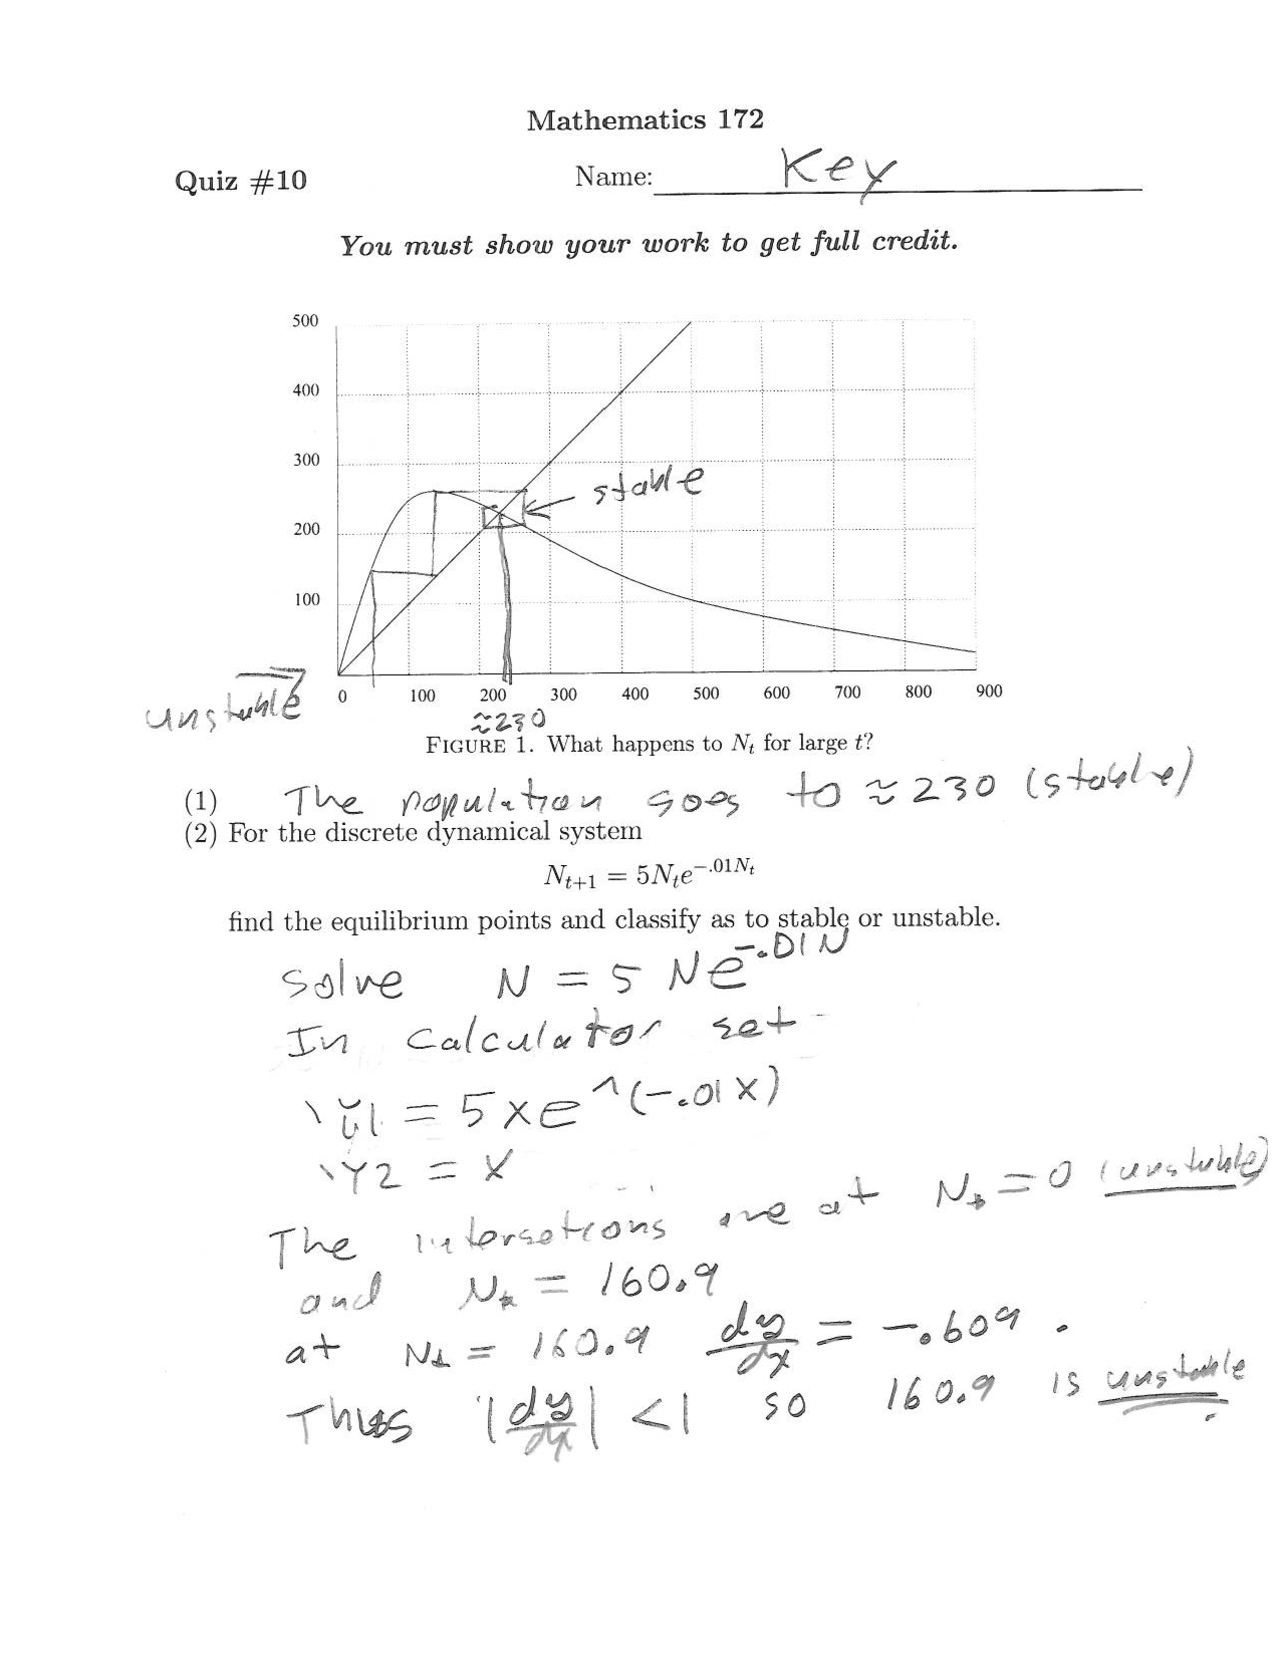 Mathematics 172
Quiz #10 Name: Key
You must show your work to get full credit.
500
400
300
stable
200
100
unstable
0 100 200 300 400 500 600 700 800 900
≈230
FIGURE 1. What happens to Nₜ for large t?
(1) The population goes to ≈ 230 (stable)
(2) For the discrete dynamical system
Nₜ₊₁ = 5Nₜe^{-.01Nₜ}
find the equilibrium points and classify as to stable or unstable.
Solve N = 5 Ne^{-.01N}
In Calculator set
\Y1 = 5xe^(-.01X)
\Y2 = X
The intersetions are at N_* = 0 (unstable)
and N_* = 160.9
at N_* = 160.9 dy/dx = -.609.
Thus |dy/dx| < 1 so 160.9 is unstable.